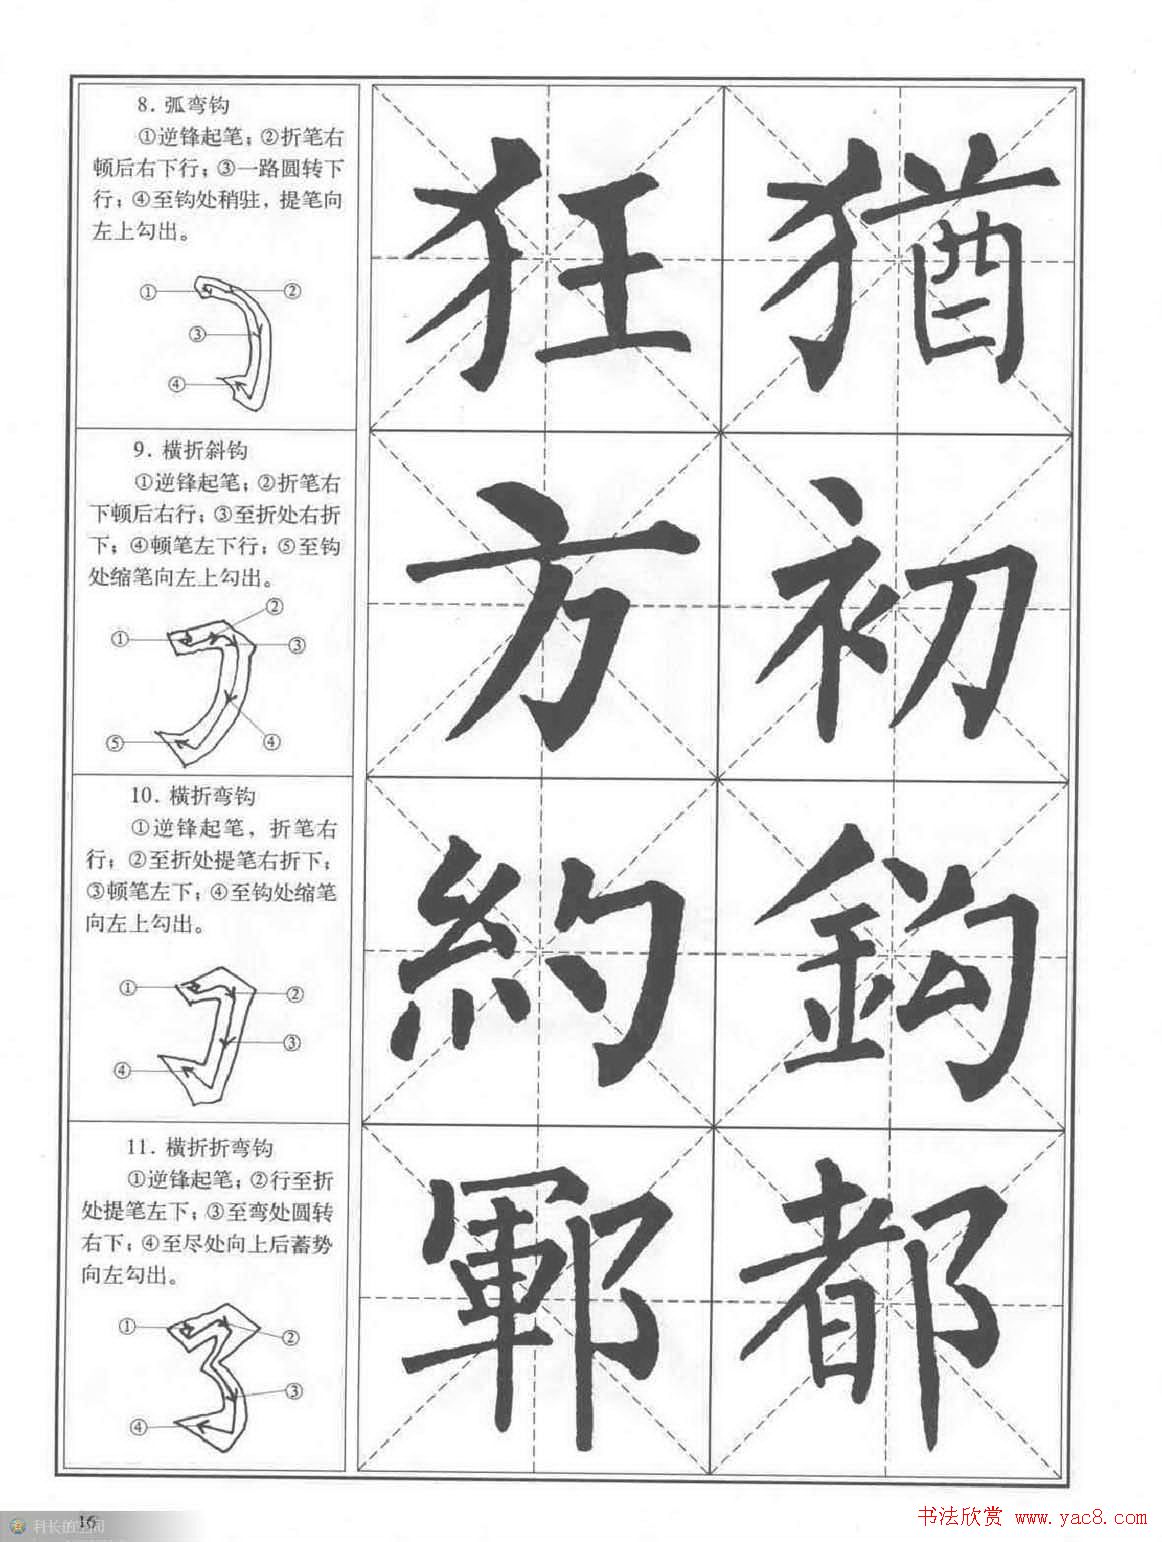 8. 弧弯钩
①逆锋起笔；②折笔右
顿后右下行；③一路圆转下
行；④至钩处稍驻，提笔向
左上勾出。
① ②
③
④
狂 猶
9. 横折斜钩
①逆锋起笔；②折笔右
下顿后右行；③至折处右折
下；④顿笔左下行；⑤至钩
处缩笔向左上勾出。
②
① ③
⑤ ④
方 初
10. 横折弯钩
①逆锋起笔，折笔右
行；②至折处提笔右折下；
③顿笔左下；④至钩处缩笔
向左上勾出。
① ②
③
④
約 鈎
11. 横折折弯钩
①逆锋起笔；②行至折
处提笔左下；③至弯处圆转
右下；④至尽处向上后蓄势
向左勾出。
① ②
③
④
鄆 都
16
科长的空间
书法欣赏 www.yac8.com